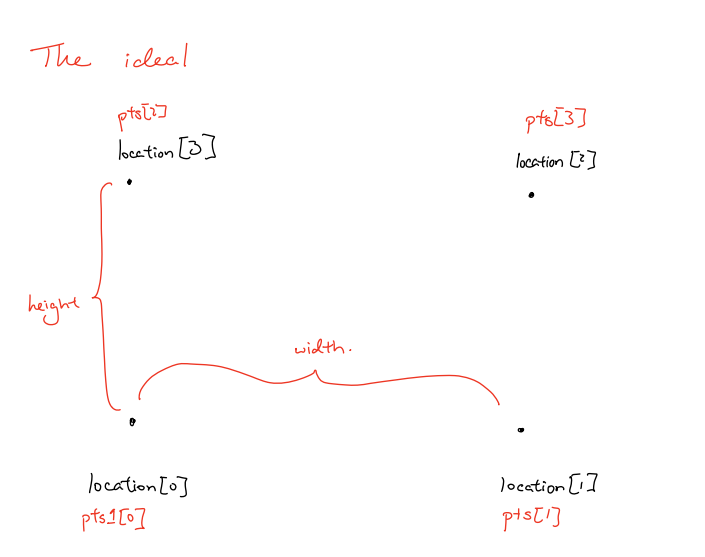 The ideal
pts[2]
location[3]
pts[3]
location[2]
height
width.
location[0]
pts1[0]
location[1]
pts[1]